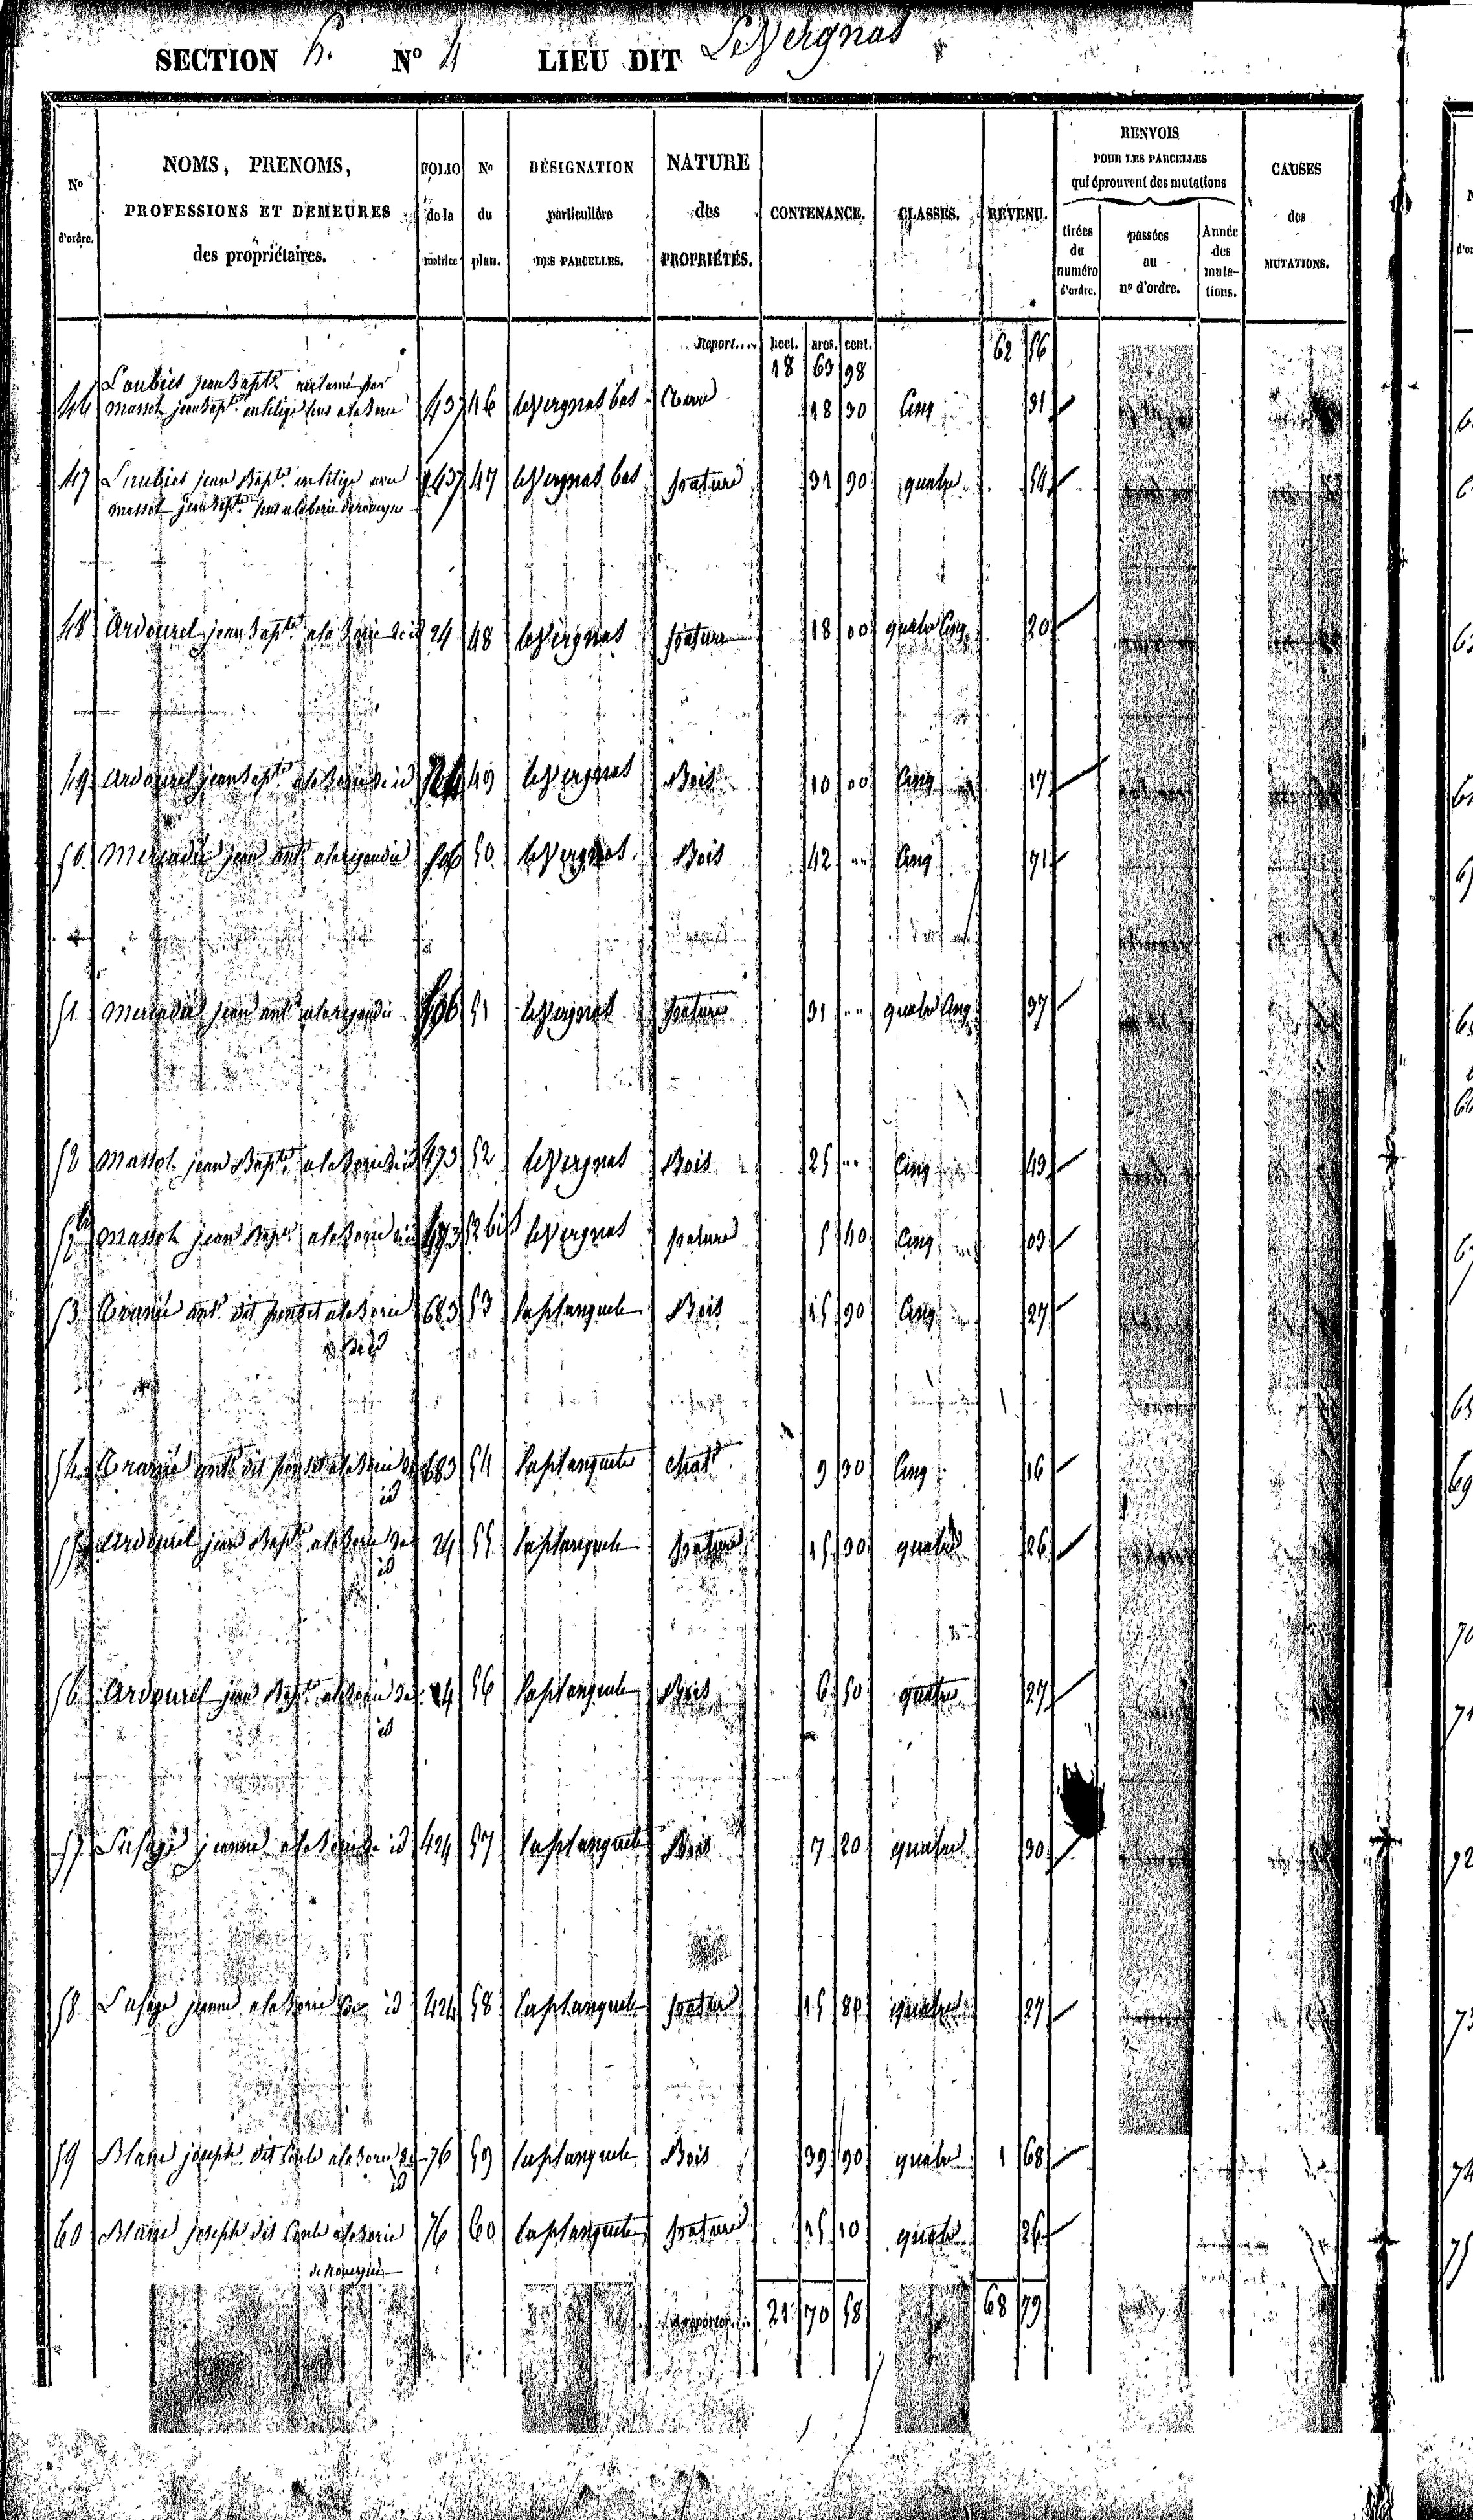 SECTION h. N° 4 LIEU DIT Le Vergnas
N° d'ordre.
NOMS, PRENOMS, PROFESSIONS ET DEMEURES des propriétaires.
FOLIO de la matrice
N° du plan.
DÉSIGNATION particulière DES PARCELLES.
NATURE des PROPRIÉTÉS.
CONTENANCE.
CLASSES.
REVENU.
RENVOIS POUR LES PARCELLES qui éprouvent des mutations
tirées du numéro d'ordre.
passées au n° d'ordre.
Année des mutations.
CAUSES des MUTATIONS.
Report.... hect. ares. cent.
18 63 98 62 56
46 Loubies jean Bapte réclamé par
massot jean Bapte en litige tous a la Borie 437 46 le Vergnas bas terre 18 30 Cinq 31
47 Loubies jean Bapte en litige avec 437 47 le Vergnas bas pature 31 90 quatre 54
massot jean Bapte tous a la borie de rouergue
48 Ardourel jean Bapte a la Borie de id 24 48 le Vergnas pature 18 00 quatre Cinq 20
49 Ardourel jean Bapte a la Borie de id 24 49 le Vergnas Bois 10 00 Cinq 17
50 Mercadié jean ant. 506 50 le Vergnas Bois 42 " Cinq 71
51 Mercadié jean ant. 506 51 le Vergnas pature 31 " quatre Cinq 37
52 Massot jean Bapte a la Borie de id 473 52 le Vergnas Bois 25 " Cinq 43
52 bis Massot jean Bapte a la Borie de id 473 52 bis le Vergnas pature 5 40 Cinq 03
53 ant. dit a la Borie 683 53 la planquete Bois 15 90 Cinq 27
de id
54 ant. dit a la Borie de 683 54 la planquete chat. 9 30 Cinq 16
id
55 Ardourel jean Bapte a la Borie de 24 55 la planquete pature 15 30 quatre 26
id
56 Ardourel jean Bapte a la Borie de 24 56 la planquete Bois 6 50 quatre 27
id
57 Lafage jeanne a la Borie de id 424 57 la planquete Bois 7 20 quatre 30
58 Lafage jeanne a la Borie de id 424 58 la planquete pature 15 80 quatre 27
59 Blanc joseph dit a la Borie de 76 59 la planquete Bois 39 90 quatre 1 68
id
60 Blanc joseph dit a la Borie 76 60 la planquete pature 15 10 quatre 26
de Rouergue
A reporter.... 21 70 58 68 79